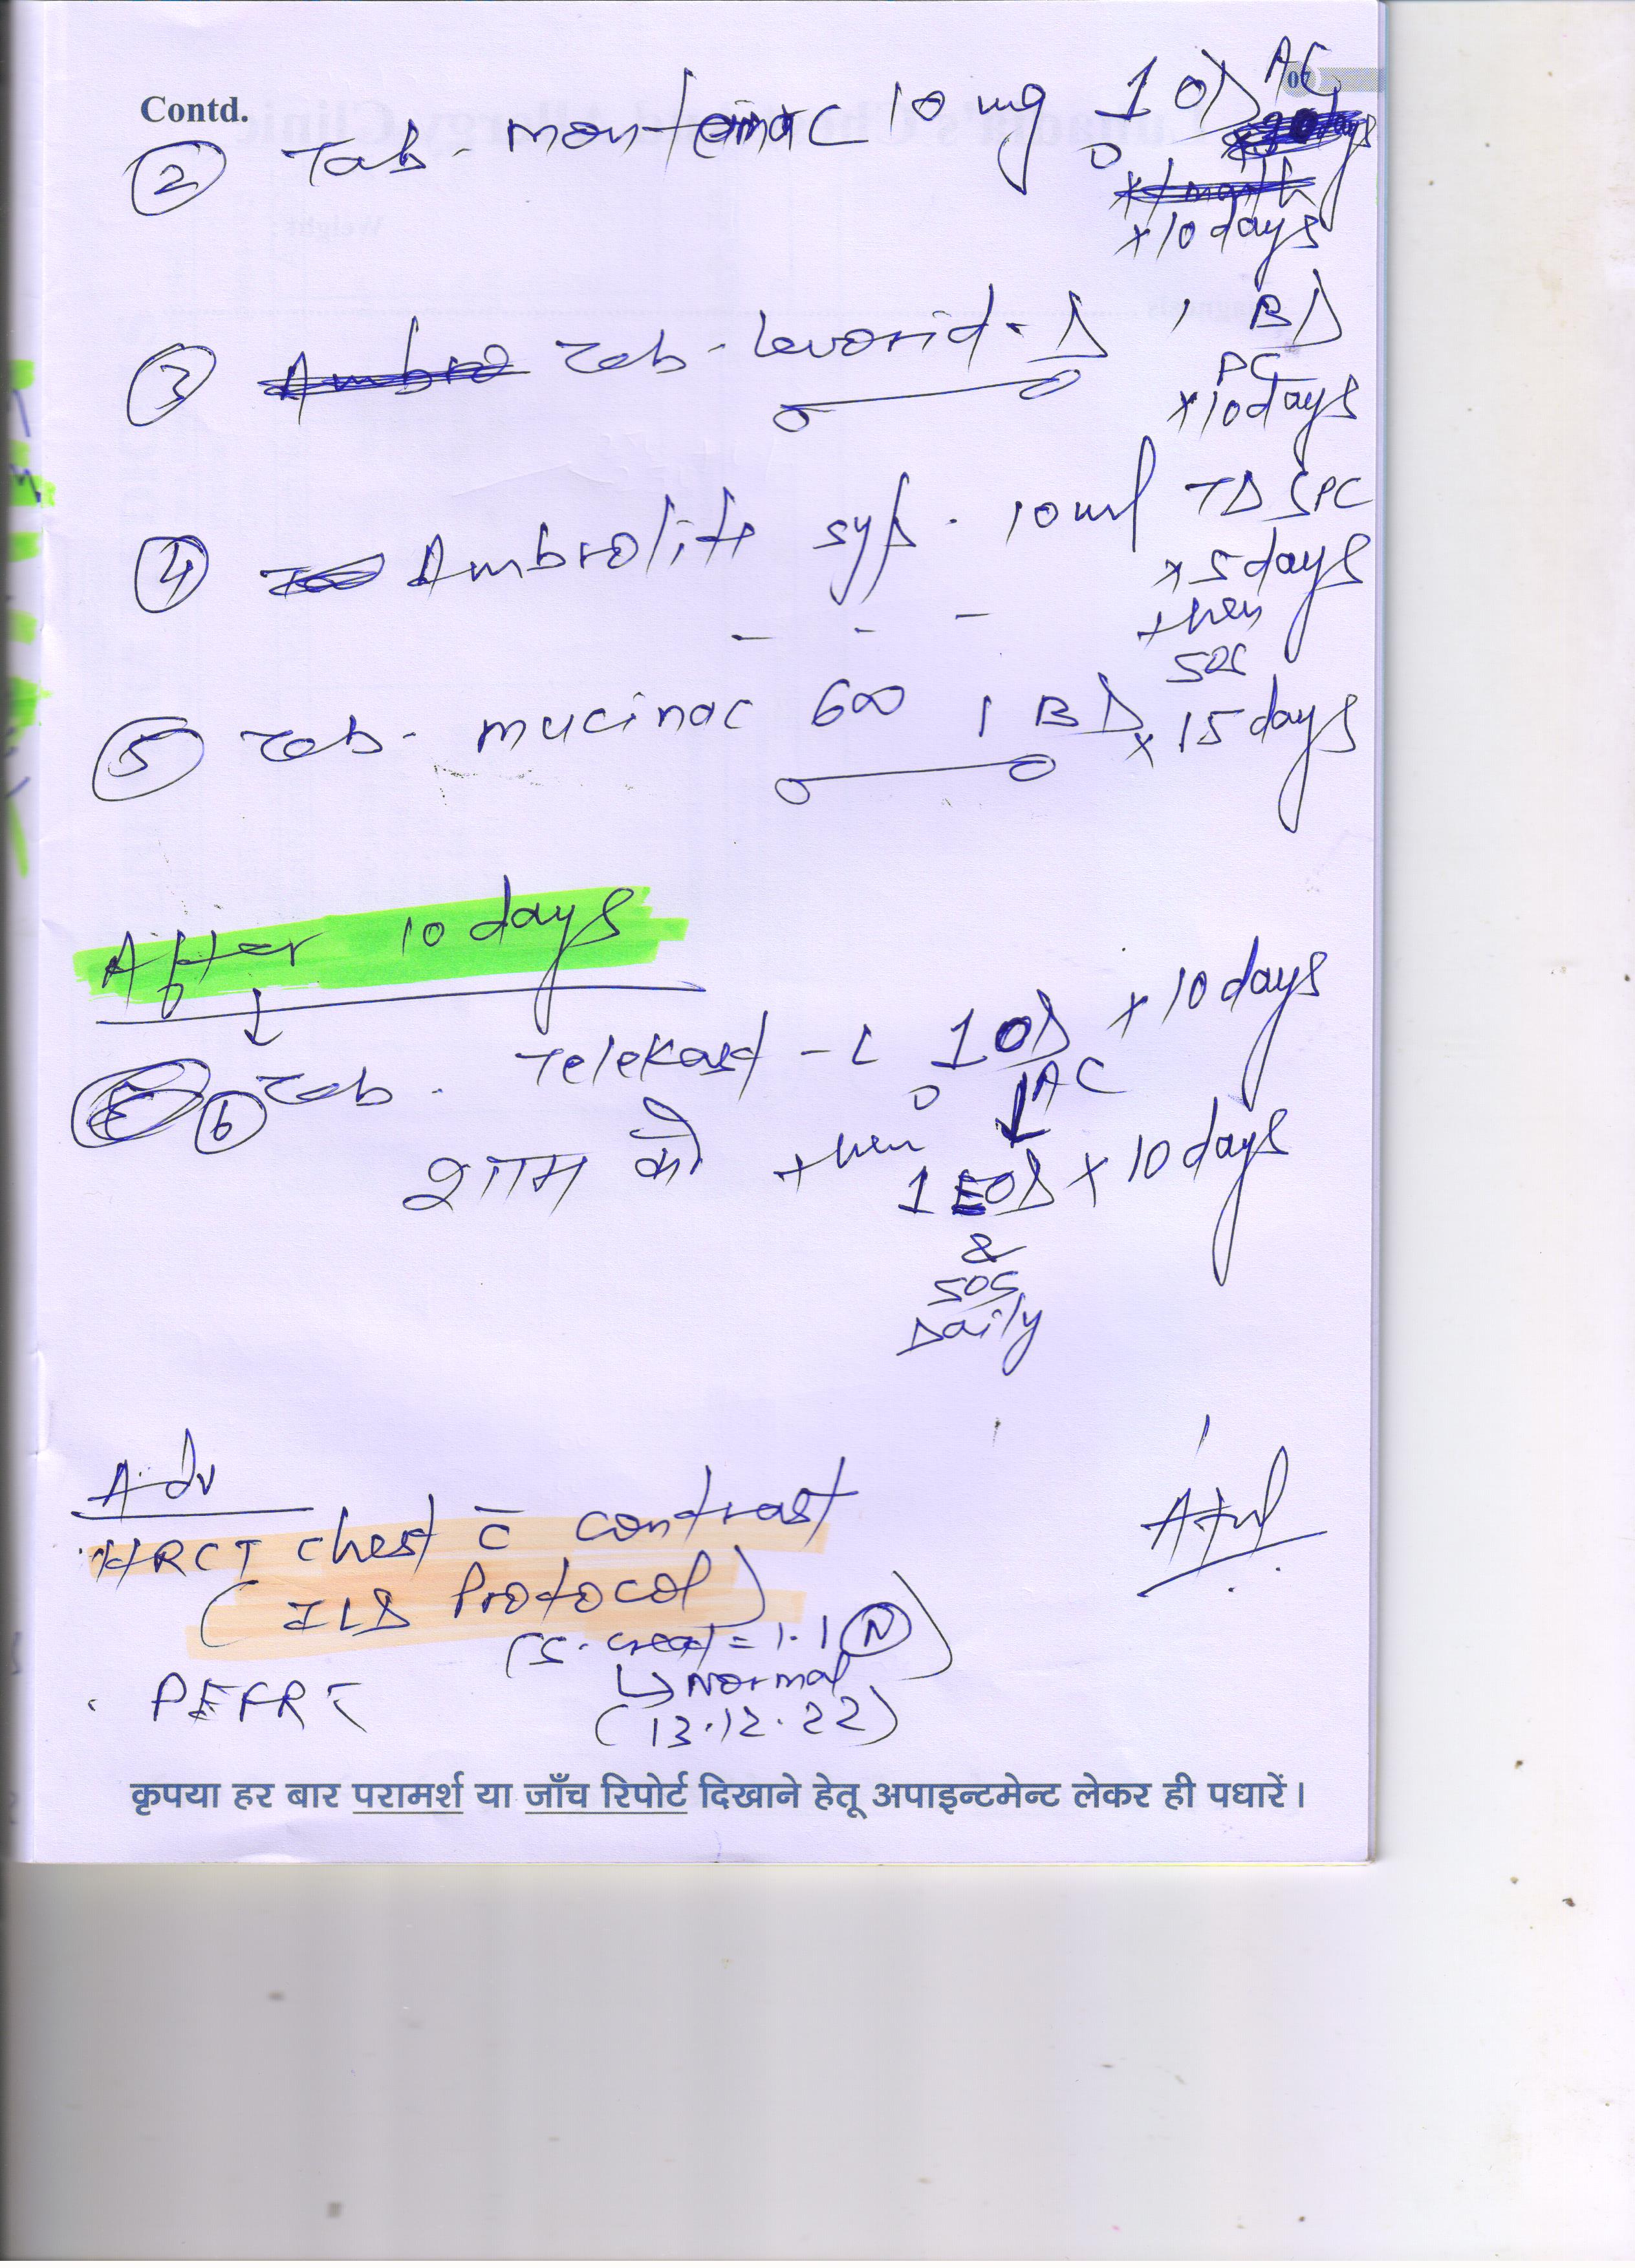 07
Contd.
② Tab - montemac 10 mg 1 OD AC
x 1 month
x 10 days
③ Ambro Tab - Levorid - D 1 BD
PC
x 10 days
④ Ambrolite syp. 10 ml TDS PC
x 5 days
then
SOS
⑤ Tab - mucinac 600 1 BD x 15 days
After 10 days
⑥ Tab. Telekast - L 1 OD x 10 days
AC
शाम को then 1 EOD x 10 days
&
SOS
Daily
Adv
HRCT chest c̄ contrast
(ILD Protocol)
(S. creat = 1.1 Ⓝ)
↳ Normal
(13.12.22)
. PEFR
कृपया हर बार परामर्श या जाँच रिपोर्ट दिखाने हेतू अपाइन्टमेन्ट लेकर ही पधारें।